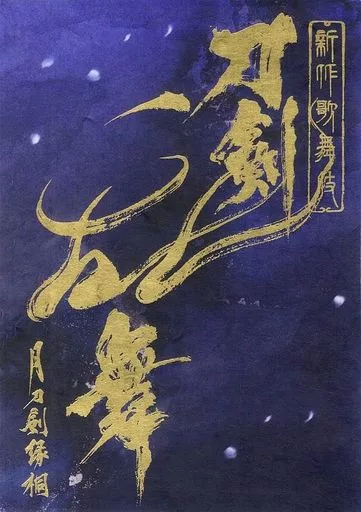 新作歌舞伎
刀剣乱舞
月刀剣縁桐